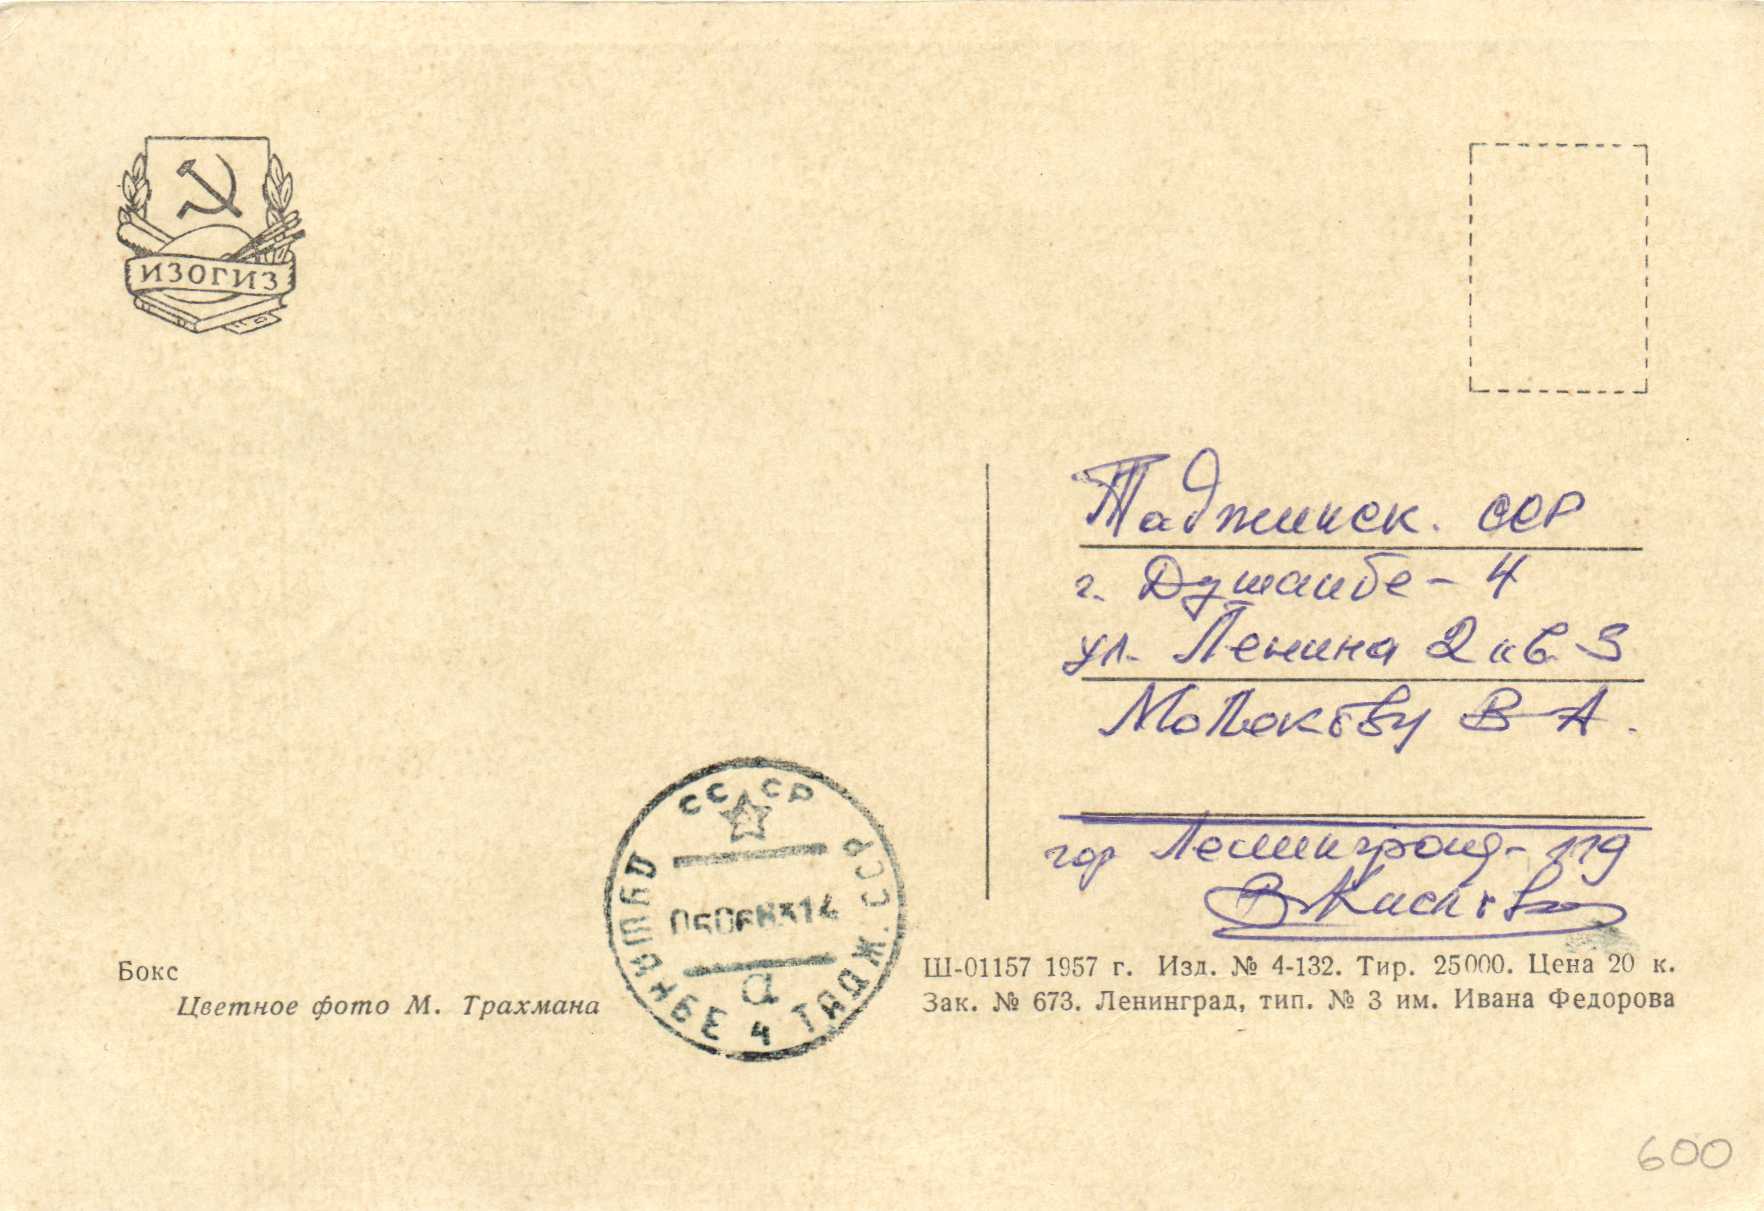 ИЗОГИЗ
Таджикск. ССР
г. Душанбе-4
ул. Ленина 2 кв 3
В А.
гор Ленинград-119
СССР
ДУШАНБЕ 4 ТАДЖ. ССР
а
Бокс
Цветное фото М. Трахмана
Ш-01157 1957 г. Изд. № 4-132. Тир. 25000. Цена 20 к.
Зак. № 673. Ленинград, тип. № 3 им. Ивана Федорова
600